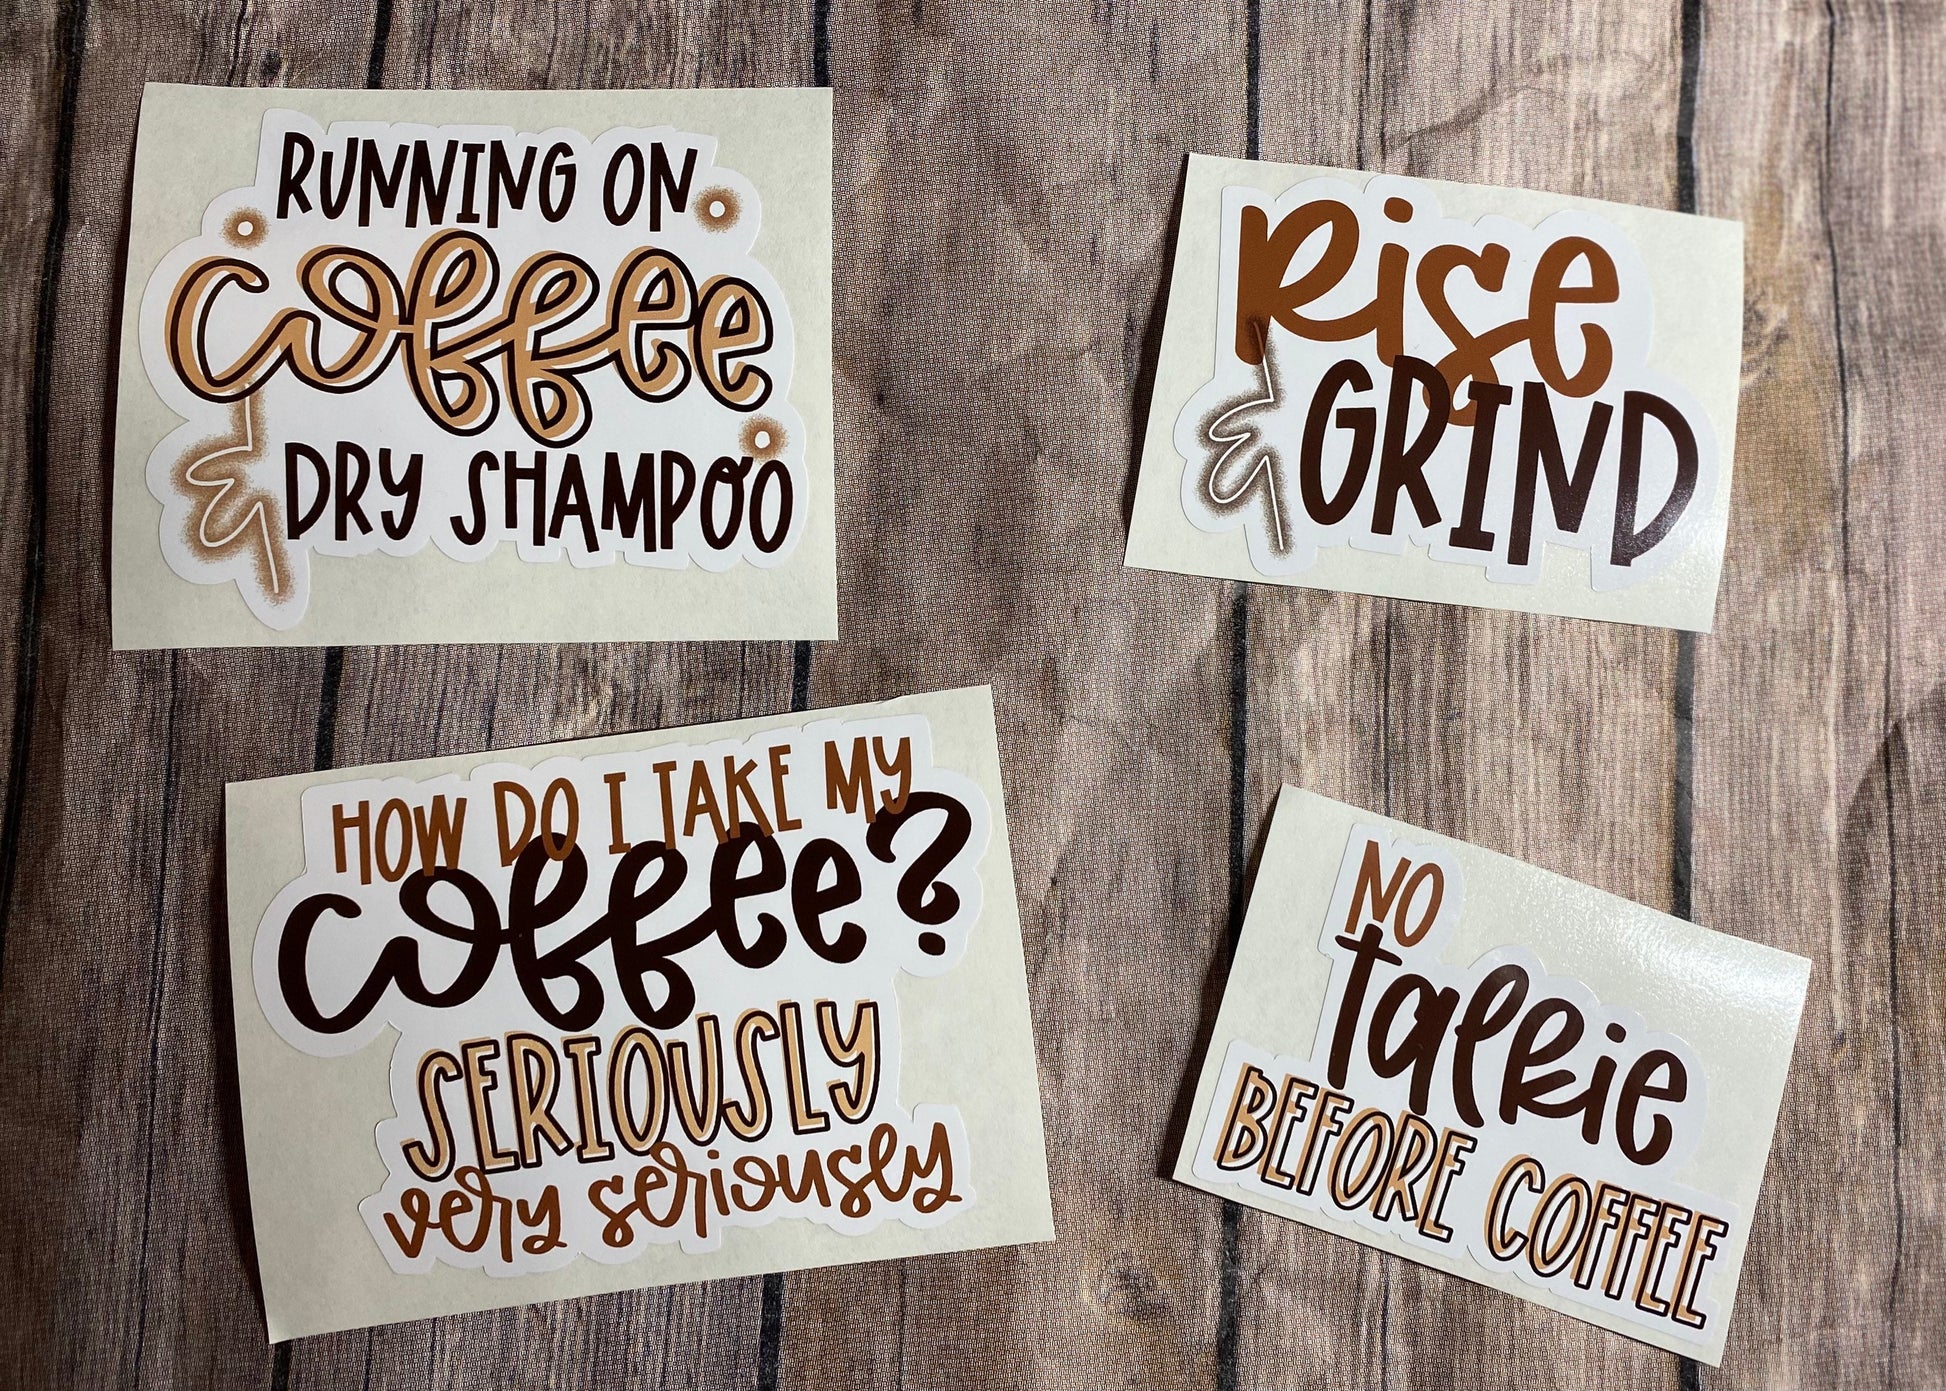 RUNNING ON
coffee
& DRY SHAMPOO
Rise
& GRIND
HOW DO I TAKE MY
coffee?
SERIOUSLY
very seriously
NO
talkie
BEFORE COFFEE